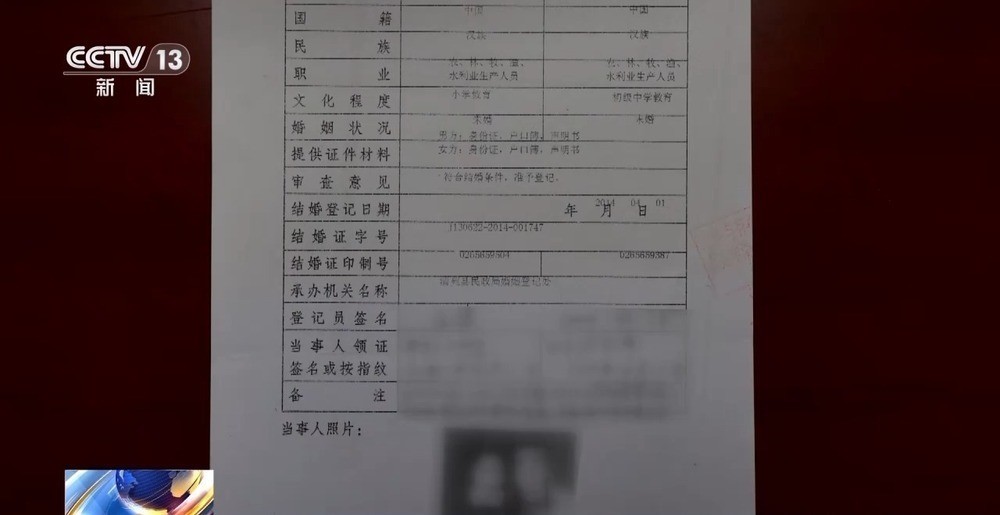 CCTV 13
新闻
国籍 中国 中国
民族 汉族 汉族
职业 农、林、牧、渔、 农、林、牧、渔、
水利业生产人员 水利业生产人员
文化程度 小学教育 初级中学教育
婚姻状况 未婚 未婚
提供证件材料 男方：身份证，户口簿，声明书
女方：身份证，户口簿，声明书
审查意见 符合结婚条件，准予登记。
结婚登记日期 2014 年 04 月 01 日
结婚证字号 J130622-2014-001747
结婚证印制号
承办机关名称 县民政局婚姻登记处
登记员签名
当事人领证
签名或按指纹
备注
当事人照片：